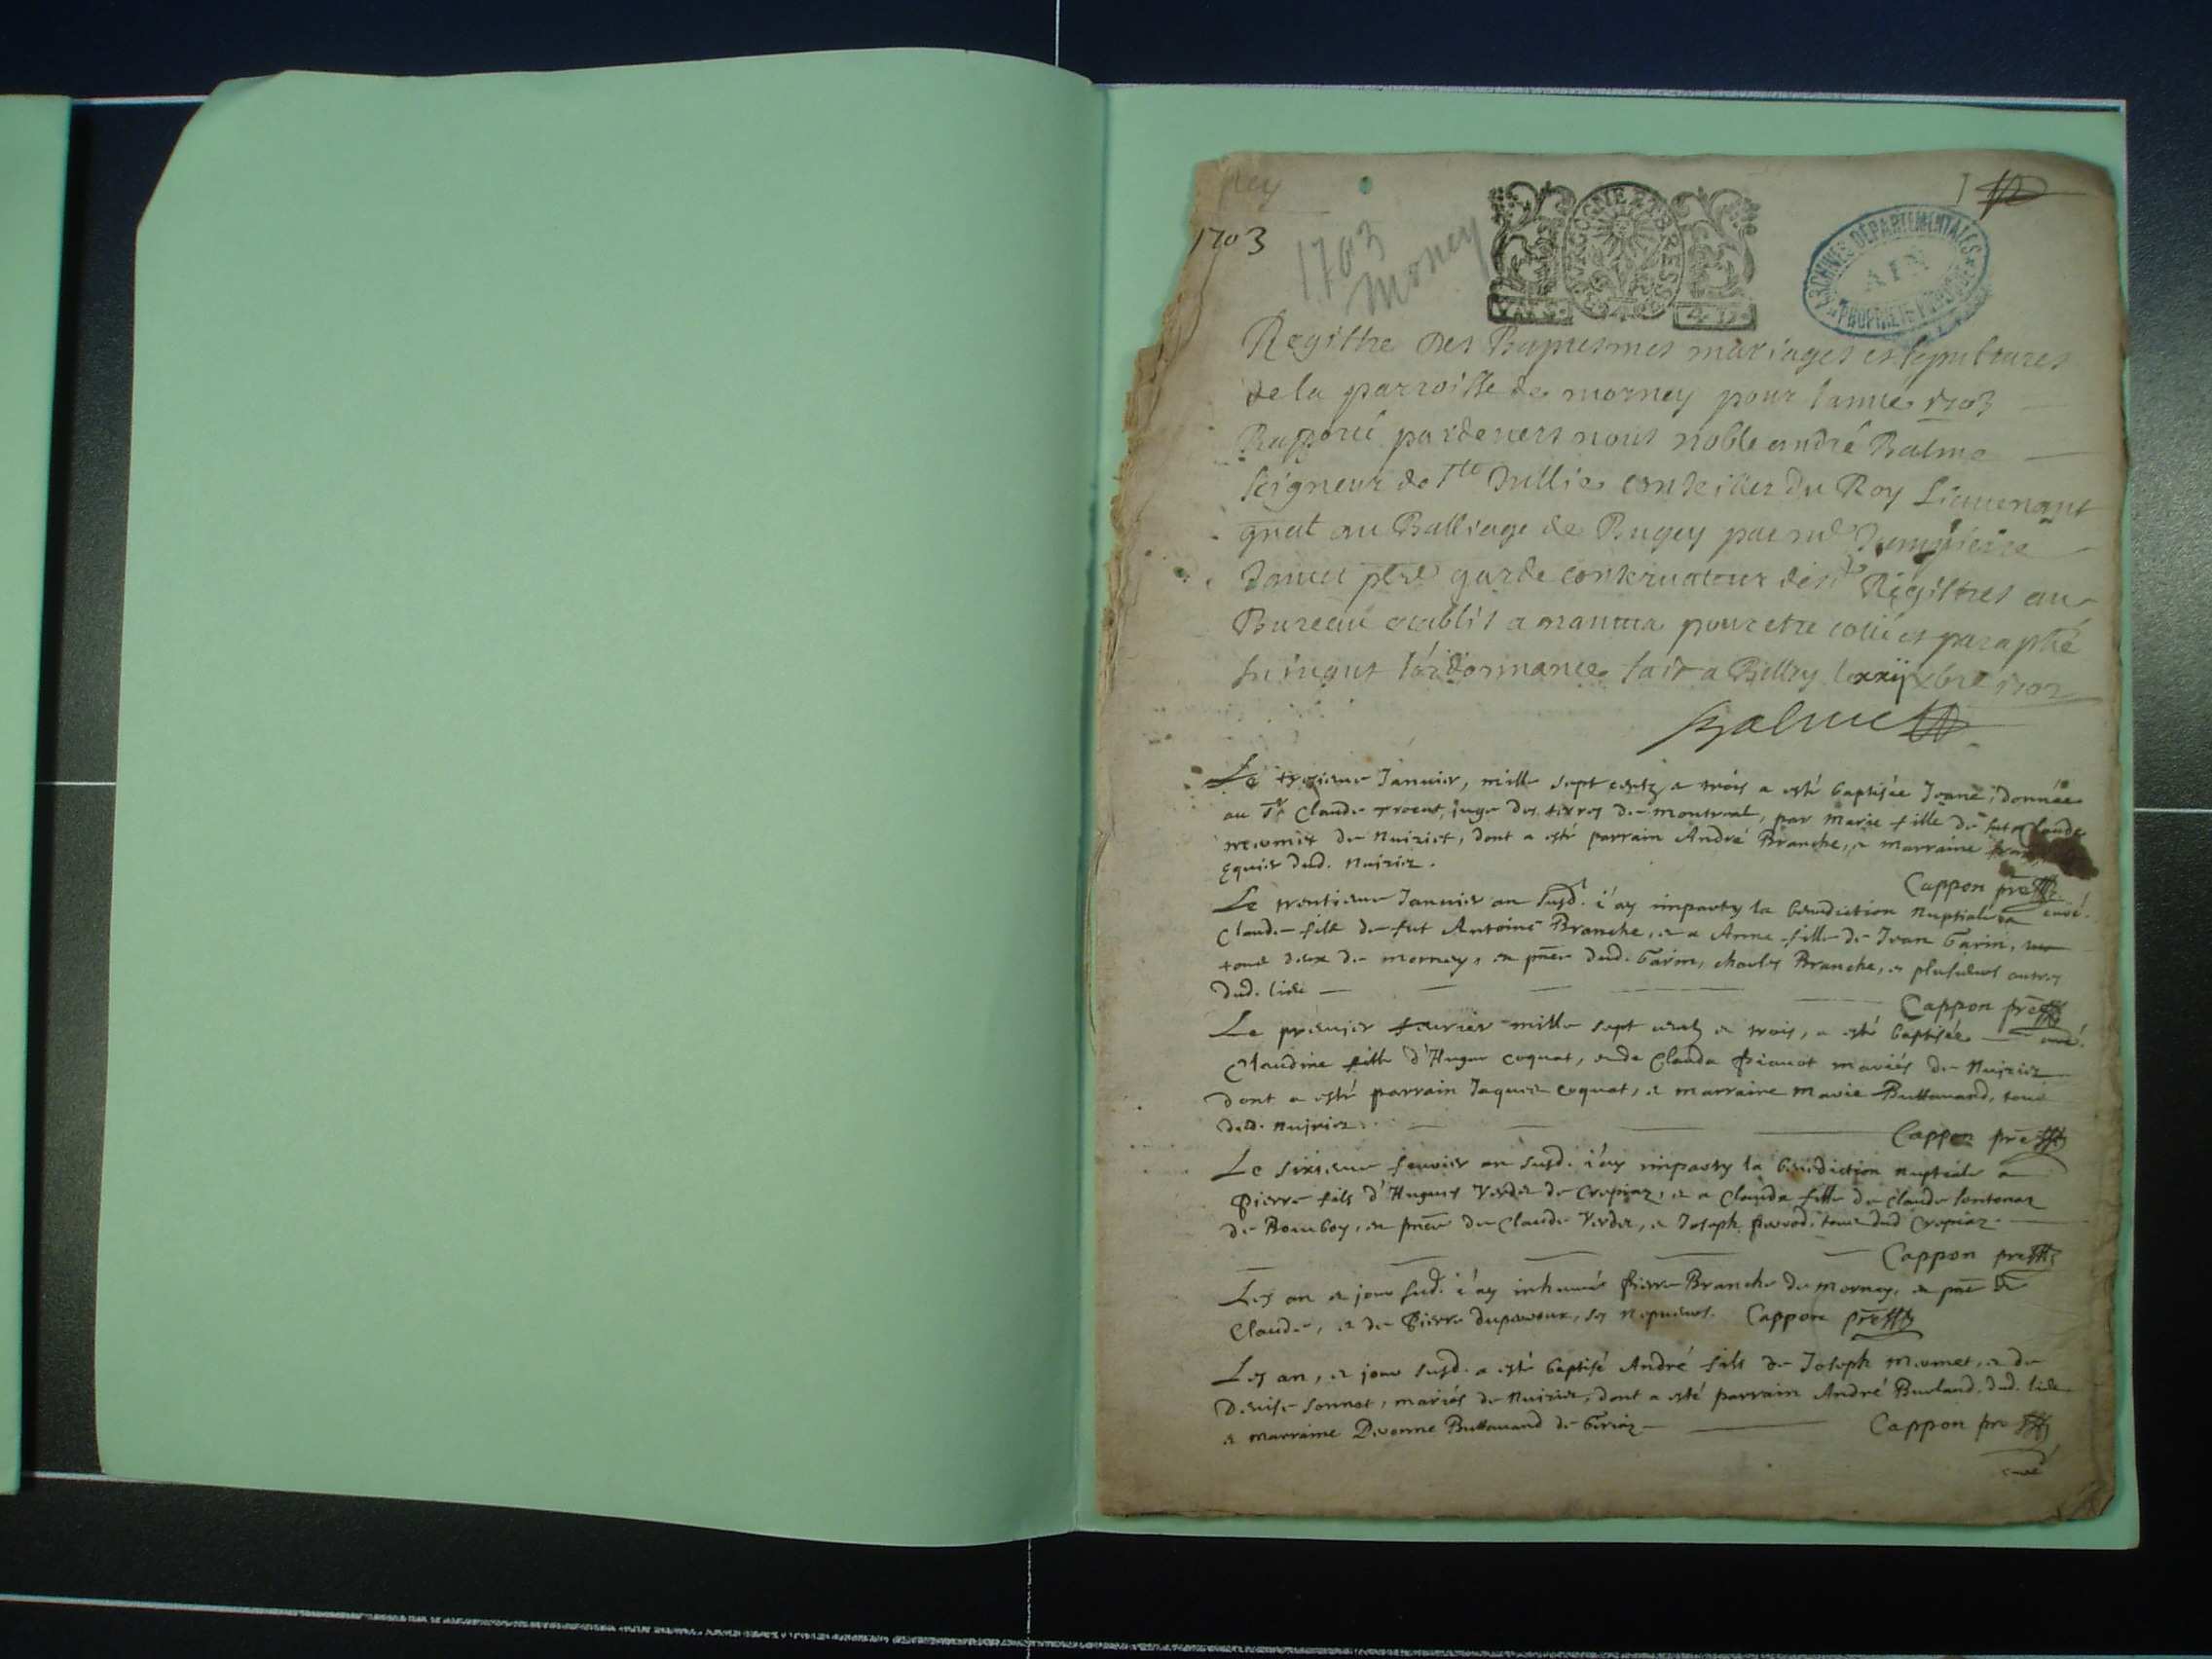 1703
1703
Morney
BOURGOGNE ET BRESSE
ARCHIVES DEPARTEMENTALES
AIN
PROPRIETE PUBLIQUE
Registre des Baptesmes mariages et sepultures
de la parroisse de morney pour l'année 1703
Rapporté pardevers nous noble andré Balme
seigneur de Ste Jullie conseiller du Roy Lieutenant
gnal au Balliage de Bugey par
garde conservateur desd Registres au
Bureau establis a nantua pour etre cotté et paraphé
suivant l'ordonnance fait a Belley le xxij xbre 1702
Balme
Le Janvier, mille sept centz et trois a esté baptisée Jeane, donnée
au Sr Claude juge des terres de montreal, par Marie fille de
de Nuirict, dont a esté parrain André Branche, et marraine
dud. Nuirier.
Cappon pre
curé.
Le trentieme Janvier an susd. i'ay imparty la benediction Nuptiale a
Claude fils de fut Antoine Branche, et a Anne fille de Jean Garin,
tous deux de mornay, en pnce dud. Garin, charles Branche, et plusieurs autres
dud. lieu
Cappon pre
curé.
Le premier feurier mille sept centz et trois, a esté baptisée
Claudine fille d'Hugue coquat, et de Clauda mariés de Nuirier
dont a esté parrain Jaques coquat, et marraine Marie Buttavand, tous
dud. nuirier.
Cappon pre
Le sixieme feuvier an susd. i'ay imparty la benediction nuptiale a
Pierre fils d'Hugues Verdet de Crepiaz, et a Clauda fille de Claude
de Bomboy, en pnce de Claude Verdet, et Joseph tous dud Crepiaz.
Cappon pre
Les an et jour susd. i'ay inhumé Pierre Branche de Mornay, en pnce de
Claude, et de Pierre ses nepueurs. Cappon pre
Les an, et jour susd. a esté baptisé André fils de Joseph et de
Denise Sonnet, mariés de Nuirier, dont a esté parrain André Burland dud. lieu
et marraine Buttavand de
Cappon pre
curé